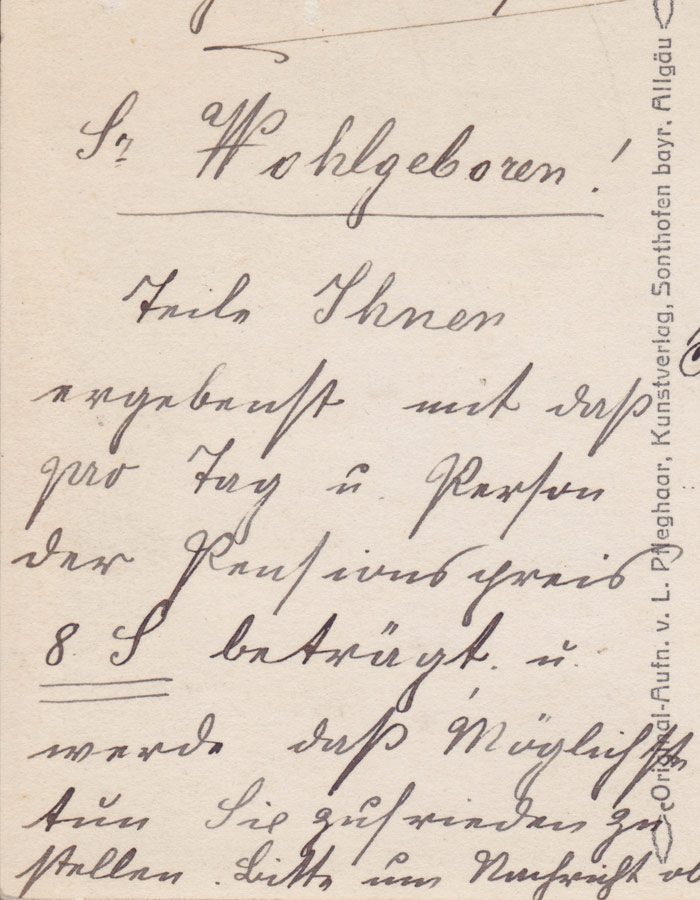 Sr Wohlgeboren!
Teile Ihnen
ergebenst mit daß
pro Tag u. Person
der Pensionspreis
8 S beträgt. u.
werde daß Möglichste
tun Sie zufrieden zu
stellen. Bitte um Nachricht ob
Original-Aufn. v. L. Pfleghaar, Kunstverlag, Sonthofen bayr. Allgäu